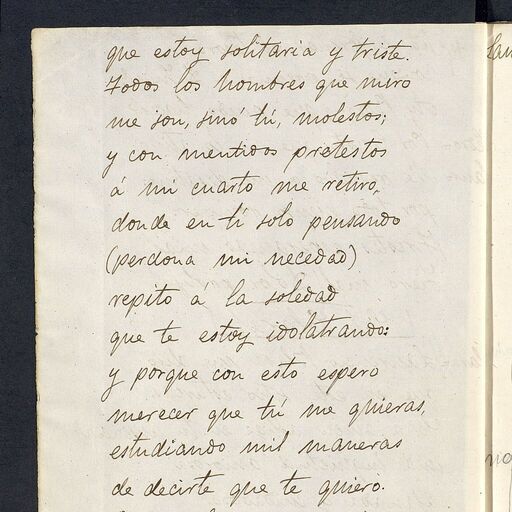 que estoy solitaria y triste.
Todos los hombres que miro
me son, sinó tú, molestos;
y con mentidos pretestos
á mi cuarto me retiro,
donde en tí solo pensando
(perdona mi necedad)
repito á la soledad
que te estoy idolatrando:
y porque con esto espero
merecer que tú me quieras,
estudiando mil maneras
de decirte que te quiero.